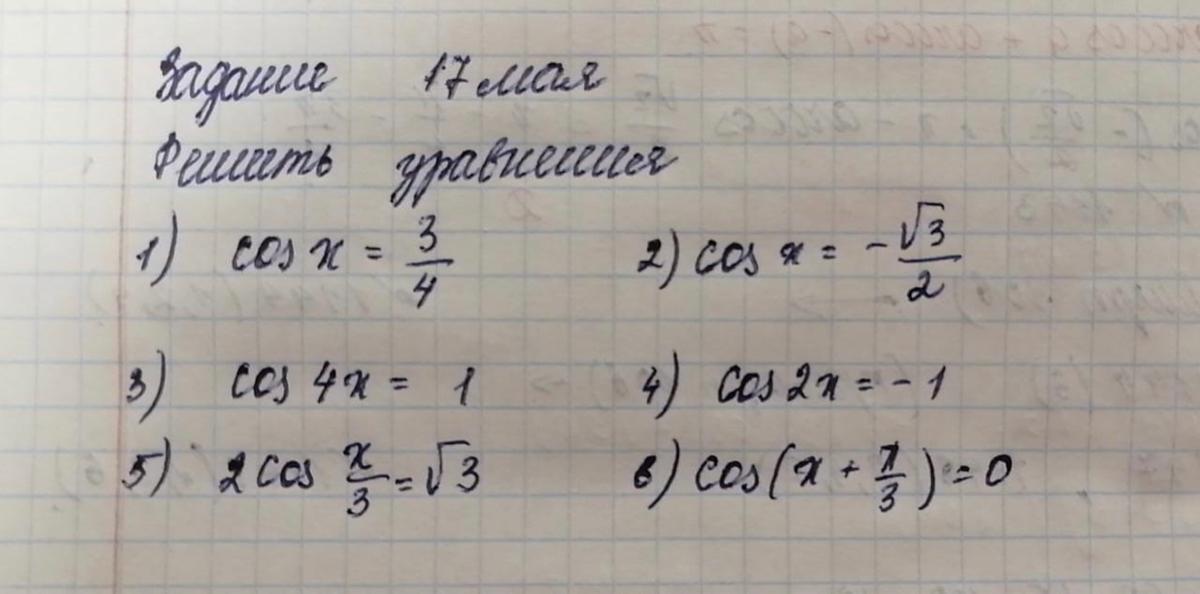 Задание 17 мая
Решить уравнения
1) cos x = 3/4 2) cos x = -√3/2
3) cos 4x = 1 4) cos 2x = -1
5) 2 cos x/3 = √3 6) cos(x + π/3) = 0